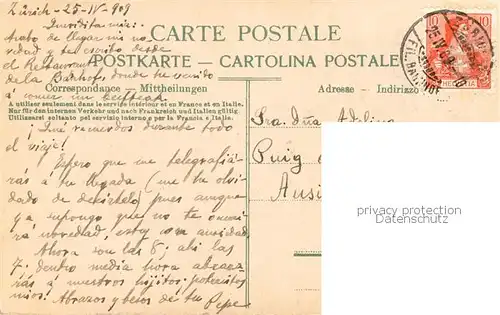 Zürich - 25 - IV - 909
CARTE POSTALE
POSTKARTE - CARTOLINA POSTALE
Queridita mia:
Acabo de llegar sin no
vedad y te escribo desde
el Restaurant
de la Bahnhof donde he venido
á comer un beefsteak
Correspondance - Mittheilungen
Adresse - Indirizzo
A utiliser seulement dans le service intérieur et en France et en Italie.
Nur für den internen Verkehr und nach Frankreich und Italien gültig.
Utilizzarsi soltanto pel servizio interno e per la Francia e Italia.
¡Qué recuerdos durante todo
el viaje!
Espero que me telegrafia-
rás á tu llegada (me he olvi-
dado de decirtelo) pues aunque
ya supongo que no te ocurri
rá novedad, estoy con ansiedad
Ahora son las 8; ahi las
7: dentro media hora abraza-
rás á nuestros hijitos: pobrecitos
mios! Abrazos y besos de tu Pepe
Sra. Dña
Puig
10 10
HELVETIA
25 IV 09
privacy protection